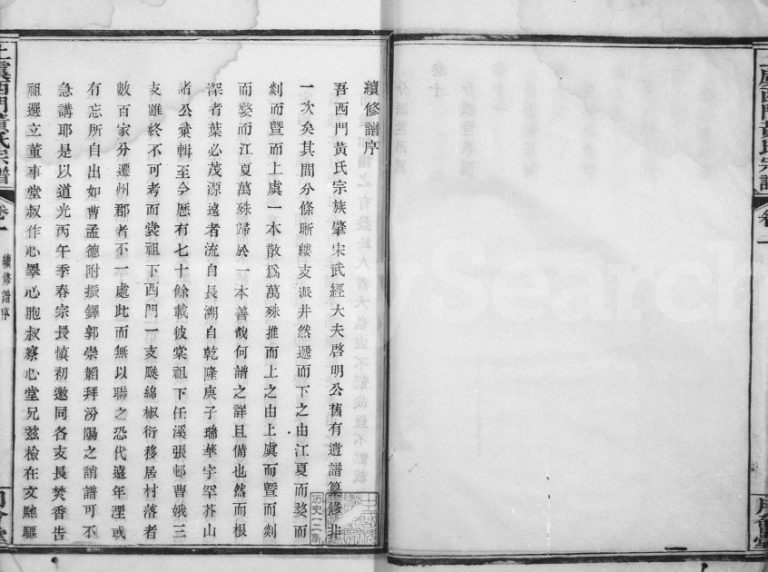 續修譜序
吾西門黃氏宗族肇宋武經大夫啓明公舊有遺譜纂修非
一次矣其間分條晰縷支派井然遞而下之由江夏而婺而
剡而暨而上虞一本散爲萬殊推而上之由上虞而暨而剡
而婺而江夏萬殊歸於一本善哉何譜之詳且備也然而根
深者葉必茂源遠者流自長溯自乾隆庚子瑞華字罕芥山
諸公彙輯至今歷有七十餘載彼棠祖下任溪張邨曹娥三
支雖終不可考而裳祖下西門一支瓞綿椒衍移居村落者
數百家分遷州郡者不一處此而無以聯之恐代遠年湮或
有忘所自出如曹孟德附振鐸郭崇韜拜汾陽之誚譜可不
急講耶是以道光丙午季春宗長慎初邀同各支長焚香告
祖選立董事堂叔作心羣心胞叔察心堂兄茲檢在文馳驅
上虞西門黃氏宗譜
卷一
續修譜序